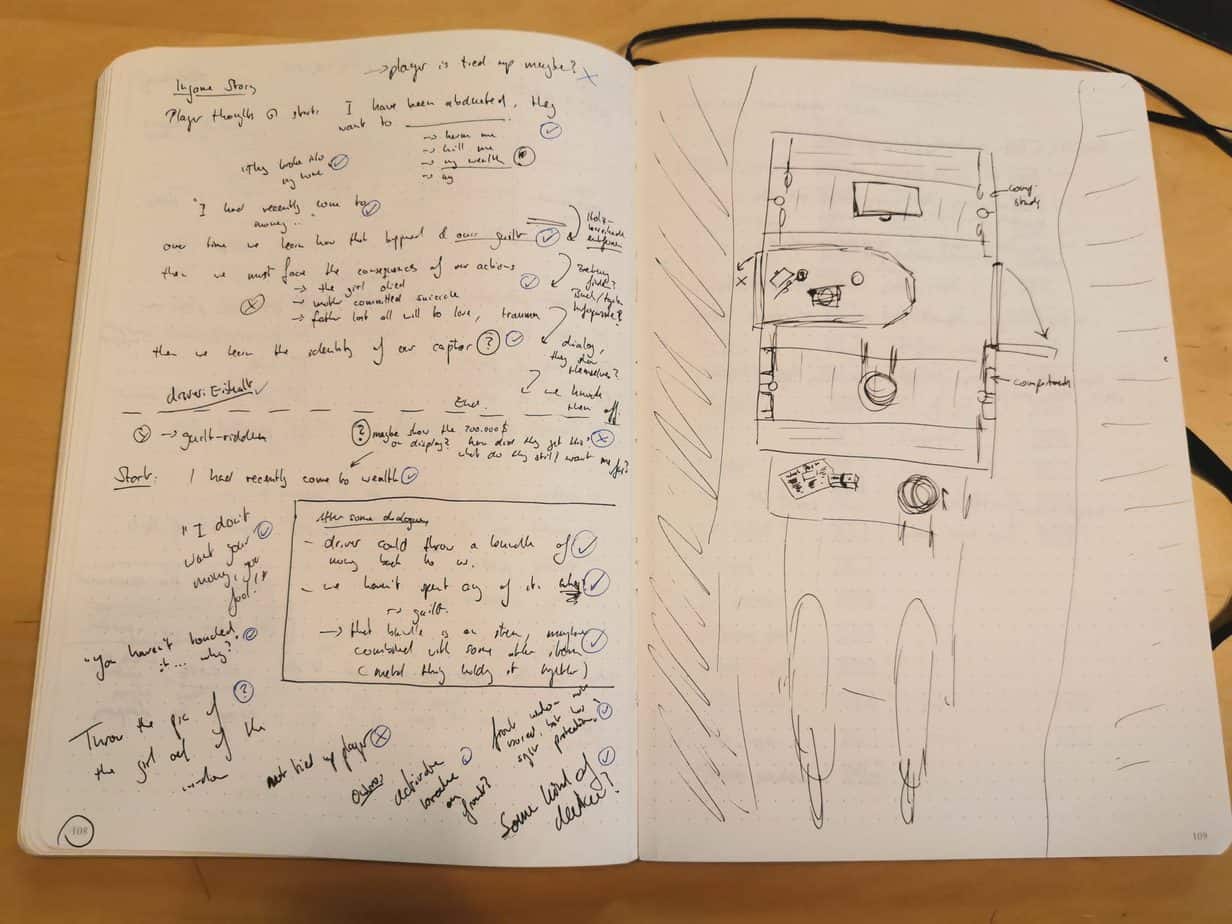 → player is tied up maybe?
Ingame Story
Player thoughts @ start: I have been abducted, they
want to
→ harm me
→ kill me
→ my wealth
"They broke into
my home
"I had recently come to
money..."
over time we learn how that happened & our guilt
then we must face the consequences of our actions
→ the girl died
→ mother committed suicide
→ father lost all will to love, trauma
then we learn the identity of our captor ?
dialog,
they show
themselves?
→ we knock
them off.
End.
→ guilt-ridden
? maybe show the 200.000$
on display? how did they get this?
what do they still want me for?
Start: I had recently come to wealth
"I don't
want your
money, you
fool!"
After some dialogue,
- driver could throw a bundle of
money back to us.
- we haven't spent any of it. why?
→ guilt.
→ that bundle is an item, maybe
combined with some other item
(metal thing holding it together)
"You haven't touched
it... why?"
Throw the pic of ?
the girl out of the
window
not tied up player
activate
on
front?
Some kind of
108
compartments
109